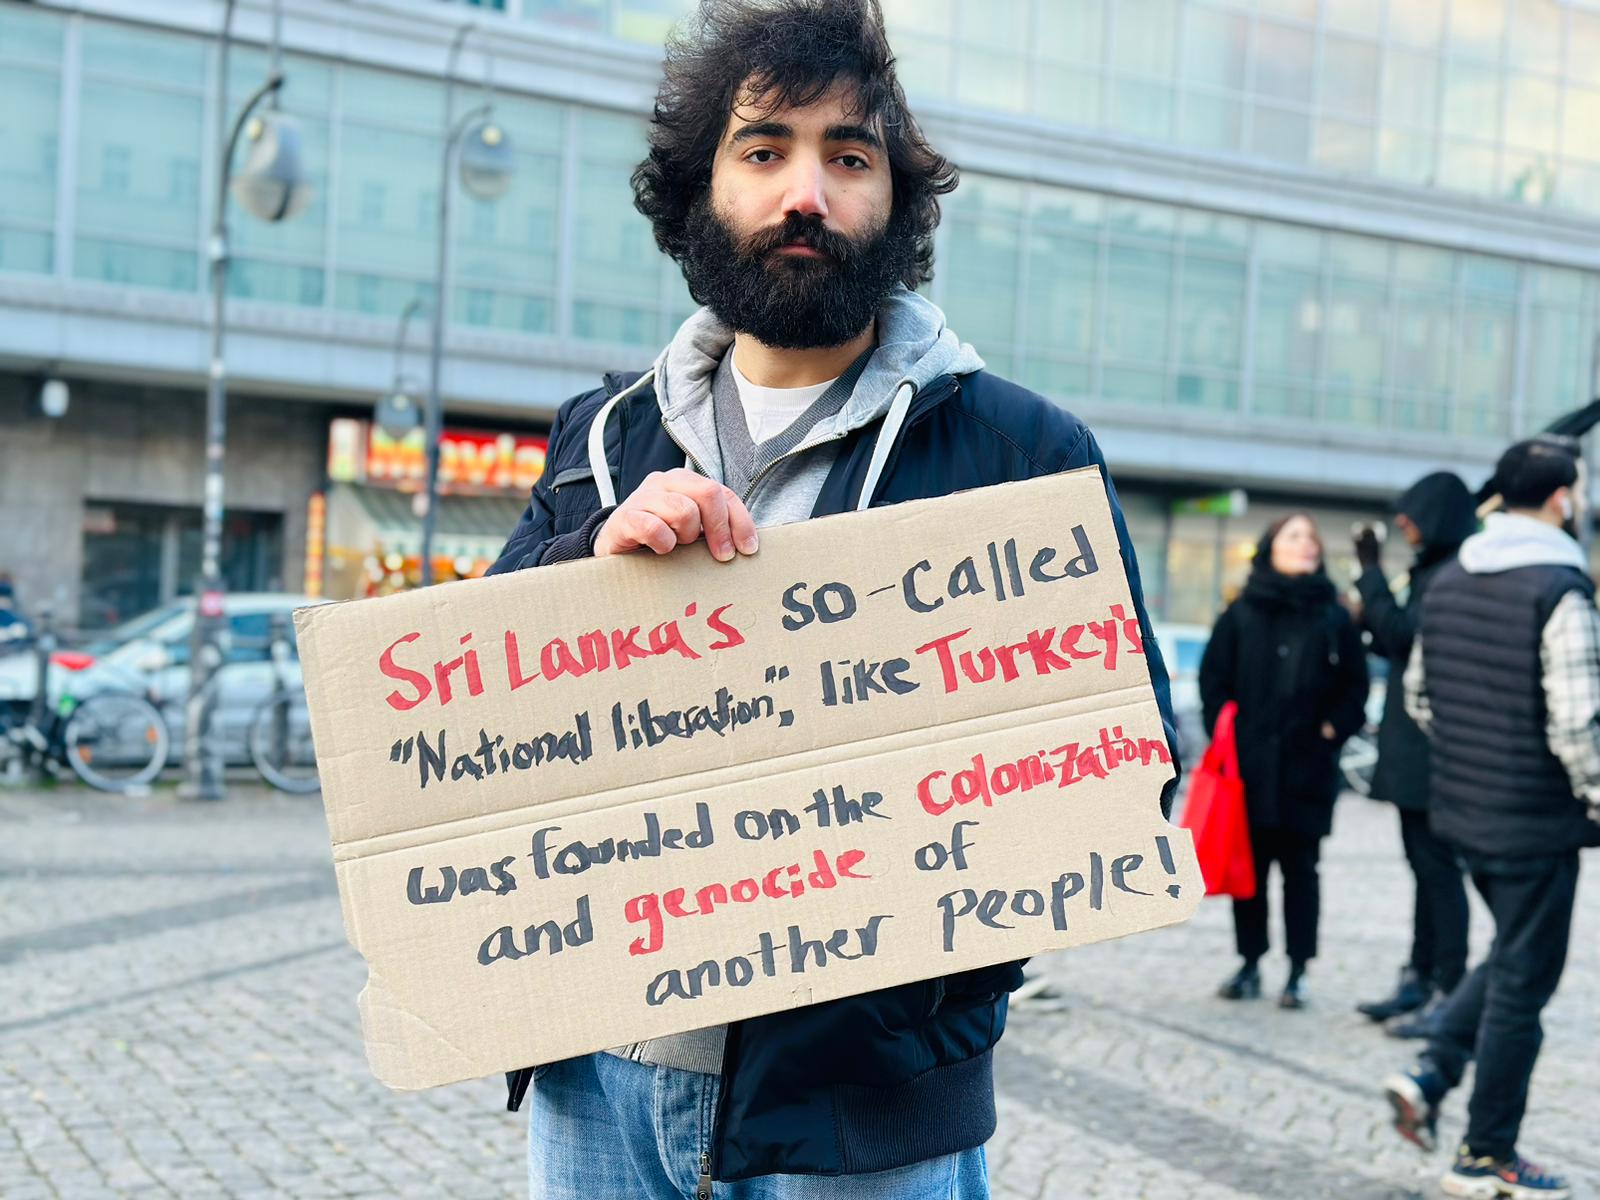 Sri Lanka's so-called
"National liberation", like Turkey's
was founded on the colonization
and genocide of
another people!